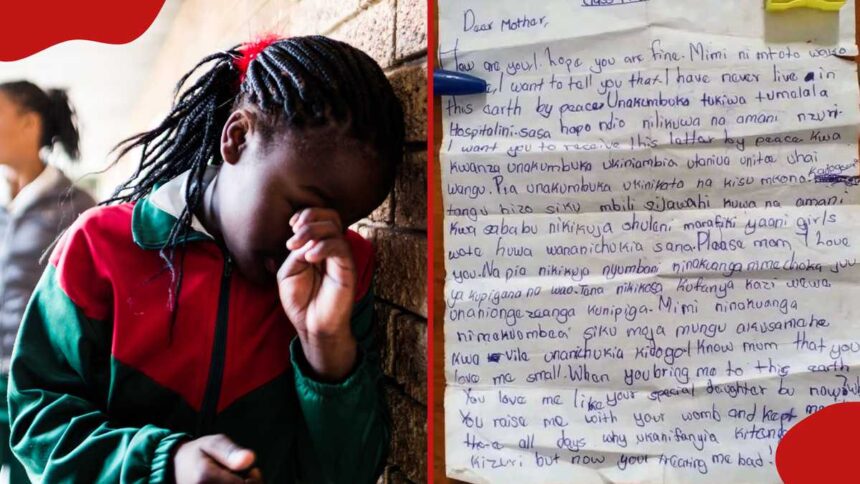 Dear Mother,
How are you!. hope you are fine. Mimi ni mtoto wako
I want to tell you that. I have never live in
this earth by peace Unakumbuka tukiwa tumalala
Hospitalini-sasa hapo ndio nilikuwa na amani nzuri.
I want you to receive this letter by peace kwa
kwanza unakumbuka ukiniambia utaniua unitoe uhai
wangu. Pia unakumbuka ukinikata na kisu mkono.
tangu hizo siku mbili sijawahi kuwa na amani
kwa sababu nikikuja shuleni marafiki yaani girls
wote huwa wananichukia sana. Please mom I Love
you. Na pia nikikuja nyumbani ninakuanga mmechoka juu
ya kupigana na wao. Tena nikikosa kufanya kazi wewe
unaniongezeanga kunipiga. Mimi ninakuanga
nimekuombea siku moja mungu akusamehe
kwa vile unanichukia kidogo I know mum that you
love me small. When you bring me to this earth
You love me like your special daughter bu now?
You raise me with your womb and kept me
there all days why ukanifanyia
kizuri but now your treating me bad!